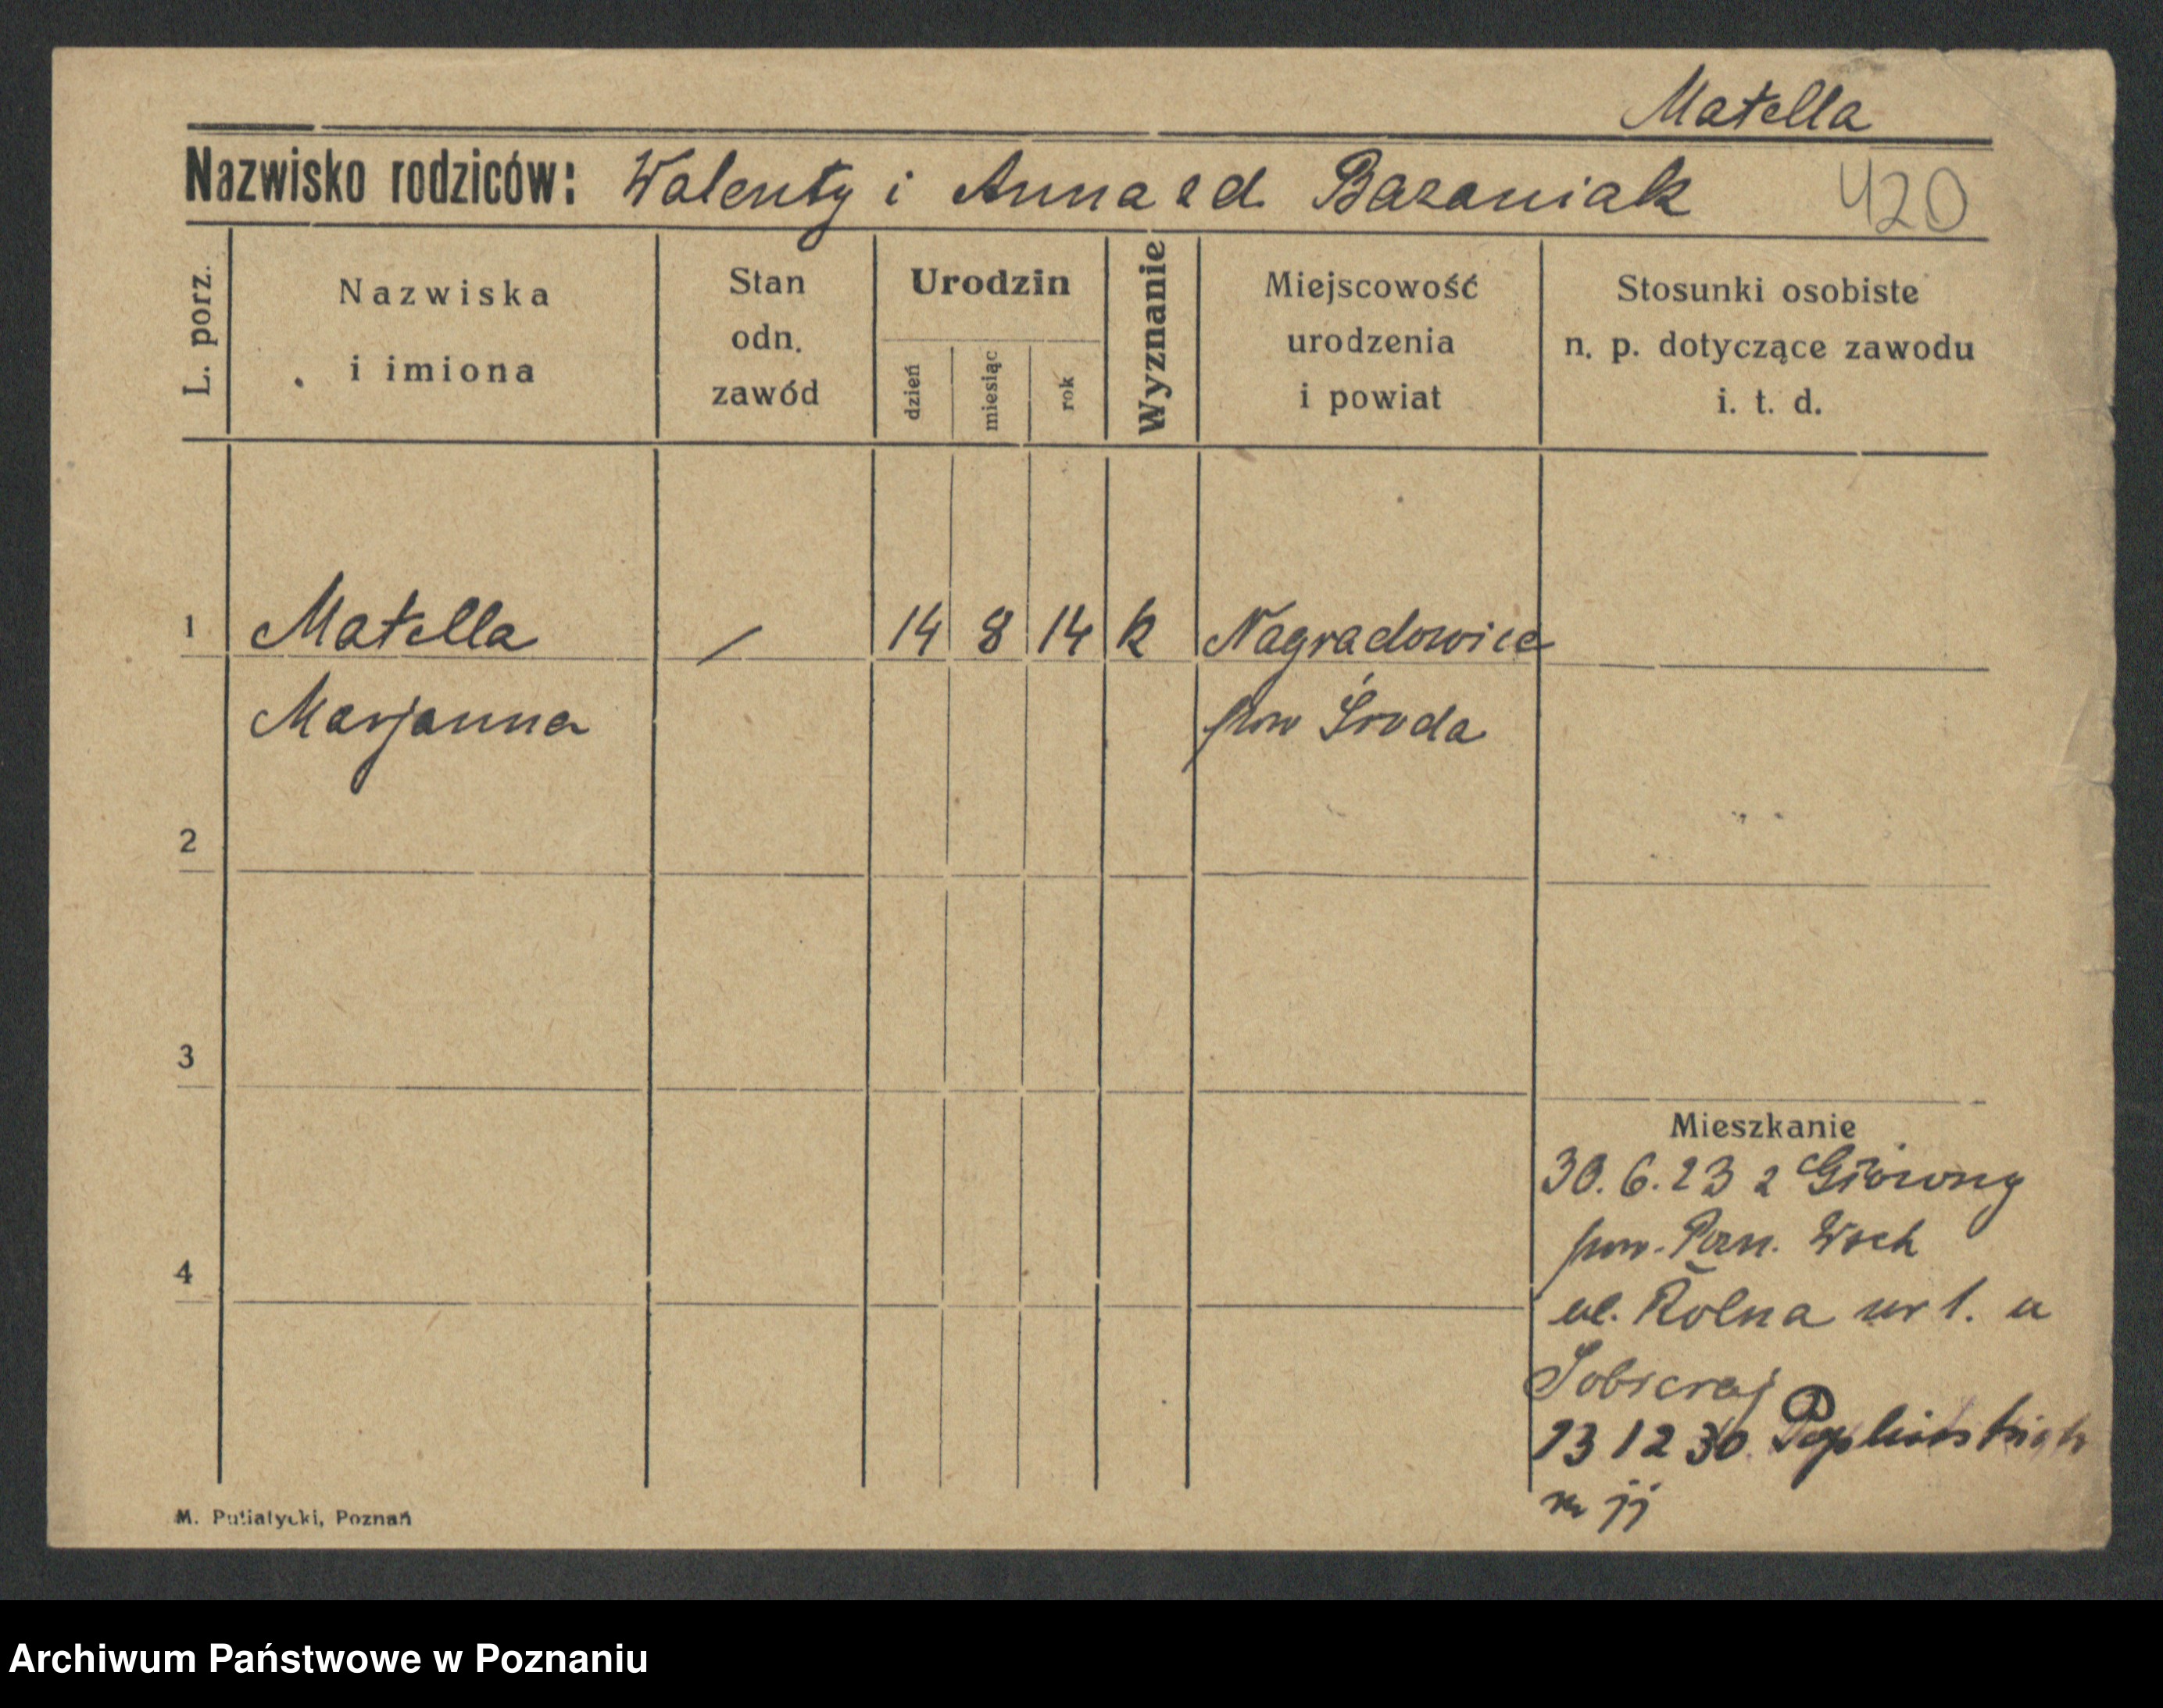 Matella
Nazwisko rodziców: Walenty i Anna zd. Bazaniak 420
L. porz.
Nazwiska
i imiona
Stan
odn.
zawód
Urodzin
dzień
miesiąc
rok
Wyznanie
Miejscowość
urodzenia
i powiat
Stosunki osobiste
n. p. dotyczące zawodu
i. t. d.
1 Matella / 14 8 14 k Nagradowice
Marjanna pow Środa
2
3
4
Mieszkanie
30.6.23 z Główny
pow. Pozn. Wsch
ul. Rolna nr 1. u
Sobieraj
13 12 30
nr
M. Putiatycki, Poznań
Archiwum Państwowe w Poznaniu